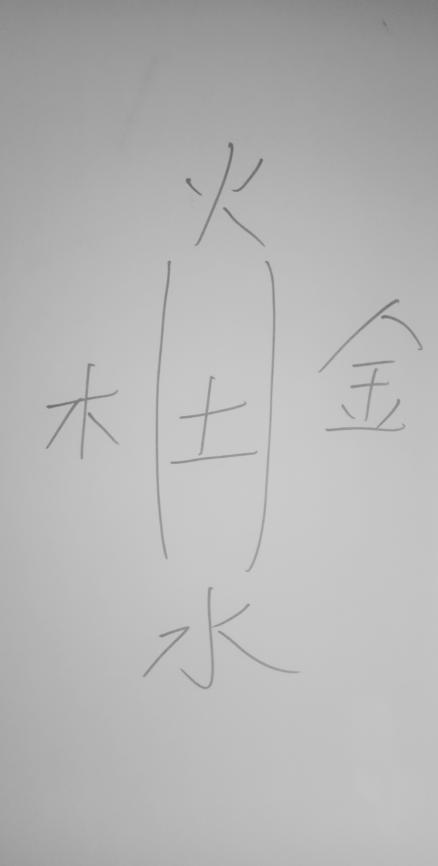 火
木(土)金
水